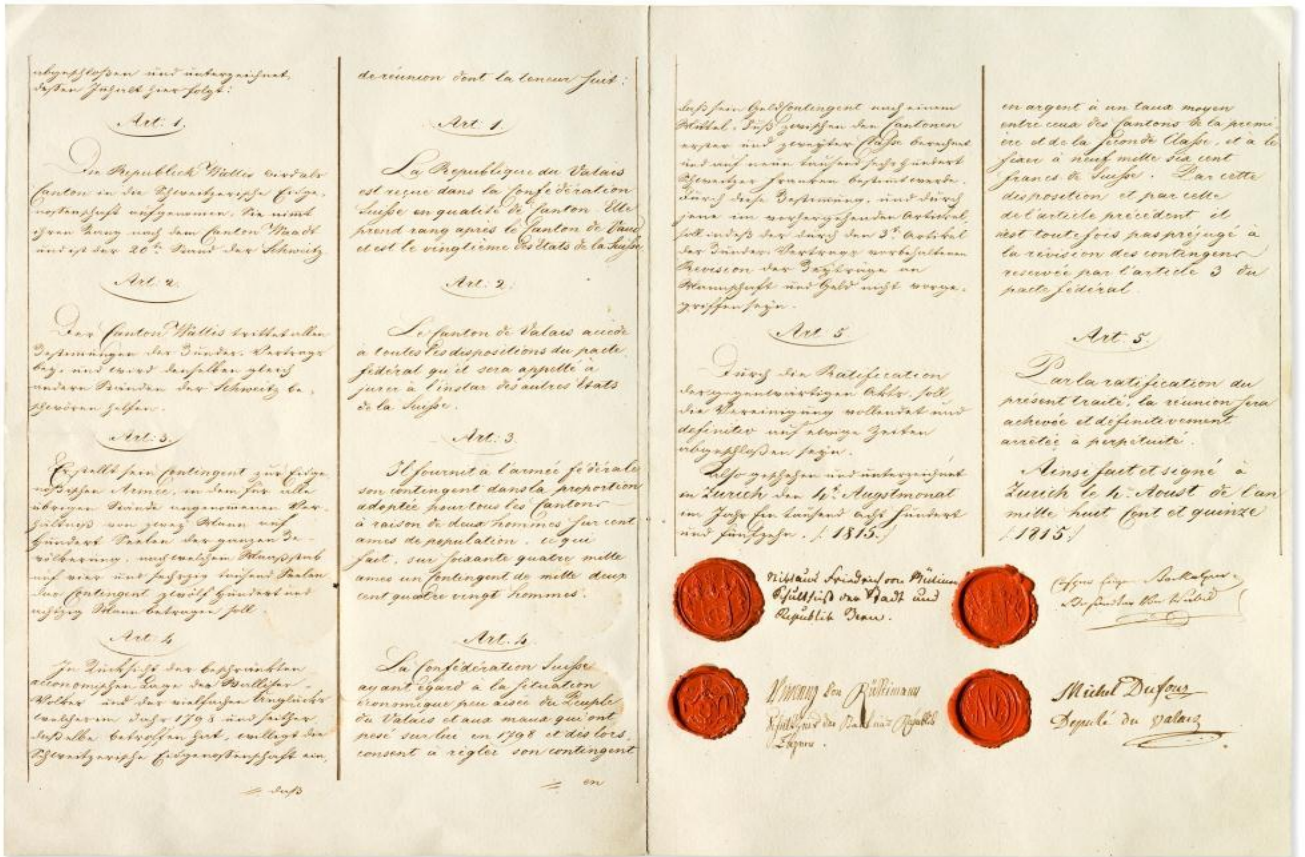 abgeschloßen und unterzeichnet,
deßen Inhalt hier folgt:
Art: 1.
Die Republick Wallis wird als
Canton in die Schweitzerische Eidge-
nossenschaft aufgenomen. Sie nimt
ihren Rang nach dem Canton Waadt
und ist der 20te Stand der Schweitz.
Art: 2.
Der Canton Wallis trittet allen
Bestimungen des Bundes-Vertrags
bey, und wird denselben gleich
andern Ständen der Schweitz be-
schwören helfen.
Art: 3.
Er stellt sein Contingent zur Eidge-
nößischen Armee, in dem für alle
übrigen Stände angenommenen Ver-
hältniß von zwey Mann auf
hundert Seelen der ganzen Be-
völkerung, nach welchem Maaßstab
auf vier und sechzig tausend Seelen
das Contingent zwölf hundert und
achtzig Mann betragen soll.
Art: 4
In Rücksicht der beschränkten
oeconomischen Lage des Walliser-
Volkes und der vielfachen Unglücks
welches im Jahr 1798 und seither
daßelbe betroffen hat, willigt die
Schweitzerische Eidgenossenschaft ein,
daß
de réunion dont la teneur suit:
Art: 1.
La Republique du Valais
est reçue dans la Confédération
Suisse en qualité de Canton. Elle
prend rang après le Canton de Vaud
et est le vingtième des Etats de la Suisse
Art: 2.
Le Canton de Valais accède
à toutes les dispositions du pacte
fédéral qu'il sera appellé à
jurer à l'instar des autres Etats
de la Suisse.
Art: 3.
Il fournit à l'armée fédérale
son contingent dans la proportion
adoptée pour tous les Cantons
à raison de deux hommes sur cent
ames de population, ce qui
fait, sur soixante quatre mille
ames un Contingent de mille deux
cent quatre vingt hommes.
Art: 4.
La Confédération Suisse
ayant égard à la situation
économique peu aisée du Peuple
du Valais et aux maux qui ont
pesé sur lui en 1798 et dès lors,
consent à régler son contingent
en
daß sein Geldcontingent nach einem
Mittel-Fuß zwischen den Cantonen
erster und zweyter Classe berechnet
und auf neun tausend sechs hundert
Schweitzer Franken bestimt werde.
Durch diese Bestimung, und durch
jene im vorhergehenden Artikel,
soll indeß der durch den 3t. Artikel
des Bundes-Vertrags vorbehaltenen
Revision der Beyträge an
Mannschaft und Geld nicht vorge-
griffen seyn.
Art: 5
Durch die Ratification
des gegenwärtigen Akts, soll
die Vereinigung vollendet und
definitiv auf ewige Zeiten
abgeschloßen seyn.
Also geschehen und unterzeichnet
in Zürich den 4t. Augstmonat
im Jahr Ein tausend acht hundert
und fünfzehn. /:1815:/
en argent à un taux moyen
entre ceux des Cantons de la premi
ère et de la seconde Classe, et à le
fixer à neuf mille six cent
francs de Suisse. Par cette
disposition et par celle
de l'article précédent il
n'est toutefois pas préjugé à
la révision des contingens
reservée par l'article 3 du
pacte fédéral
Art: 5.
Par la ratification du
présent traité, la réunion sera
achevée et définitivement
arrêtée à perpétuité.
Ainsi fait et signé à
Zurich le 4. Aoust de l'an
mille huit Cent et quinze
/:1815:/
Niklaus Friedrich von Mülinen
Schultheiß der Stadt und
Republik Bern.
von Rüttimann
Schultheiß der Stadt und Republik
Luzern.
Michel Dufour
Deputé du Valais